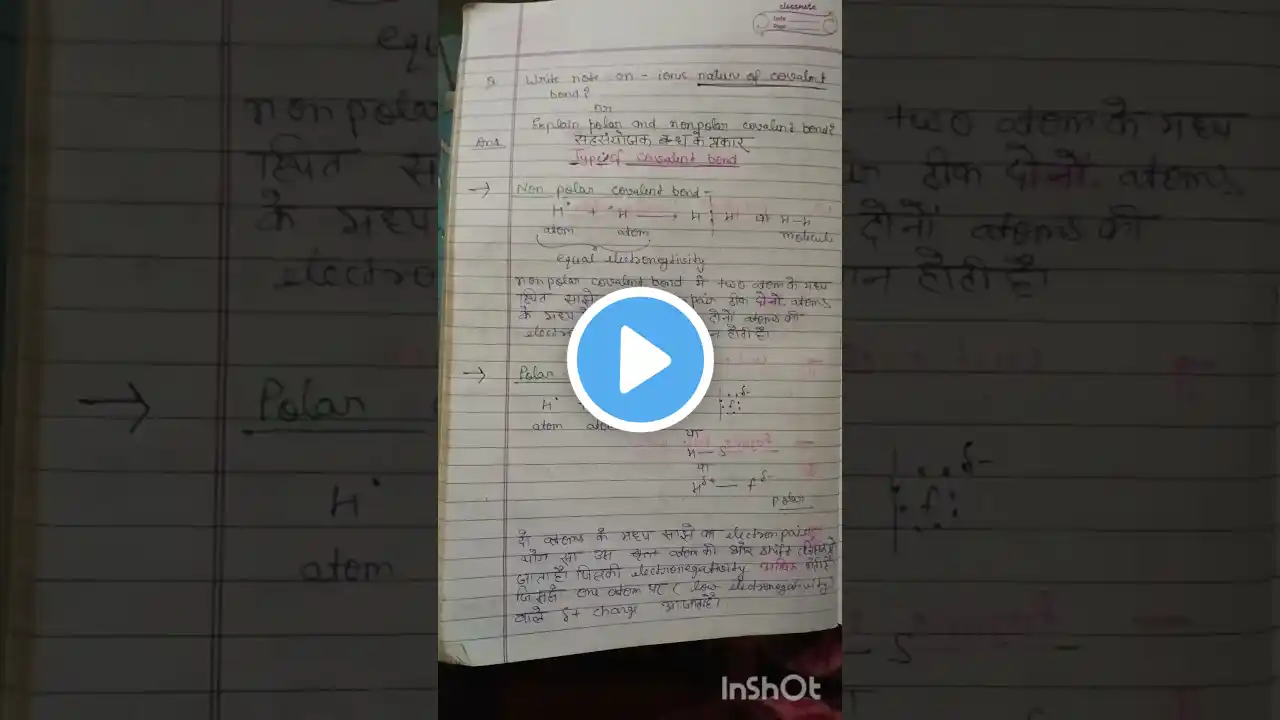 classmate
Date
Page
Q. Write note on - ionic nature of covalent
bond?
or
Explain polar and nonpolar covalent bond?
Ans
सहसंयोजक बन्ध के प्रकार
Type of covalent bond
→ Non polar covalent bond -
H + H → H : H या H-H
atom atom molecule
equal electronegtivity
non polar covalent bond में two atom के मध्य
स्थित साझे pair ठीक दोनों atoms
के मध्य दोनों atoms की
electro न होती है।
→ Polar
H F δ-
atom
या
H — 
या
H δ+ — F δ-
Polar
दो atoms के मध्य साझे का electron pair
उस atom की ओर
जाता है जिसकी electronegativity अधिक होती है
जिससे atom पर ( low electronegativity)
वाले δ+ charge आ जाता है।
InShOt